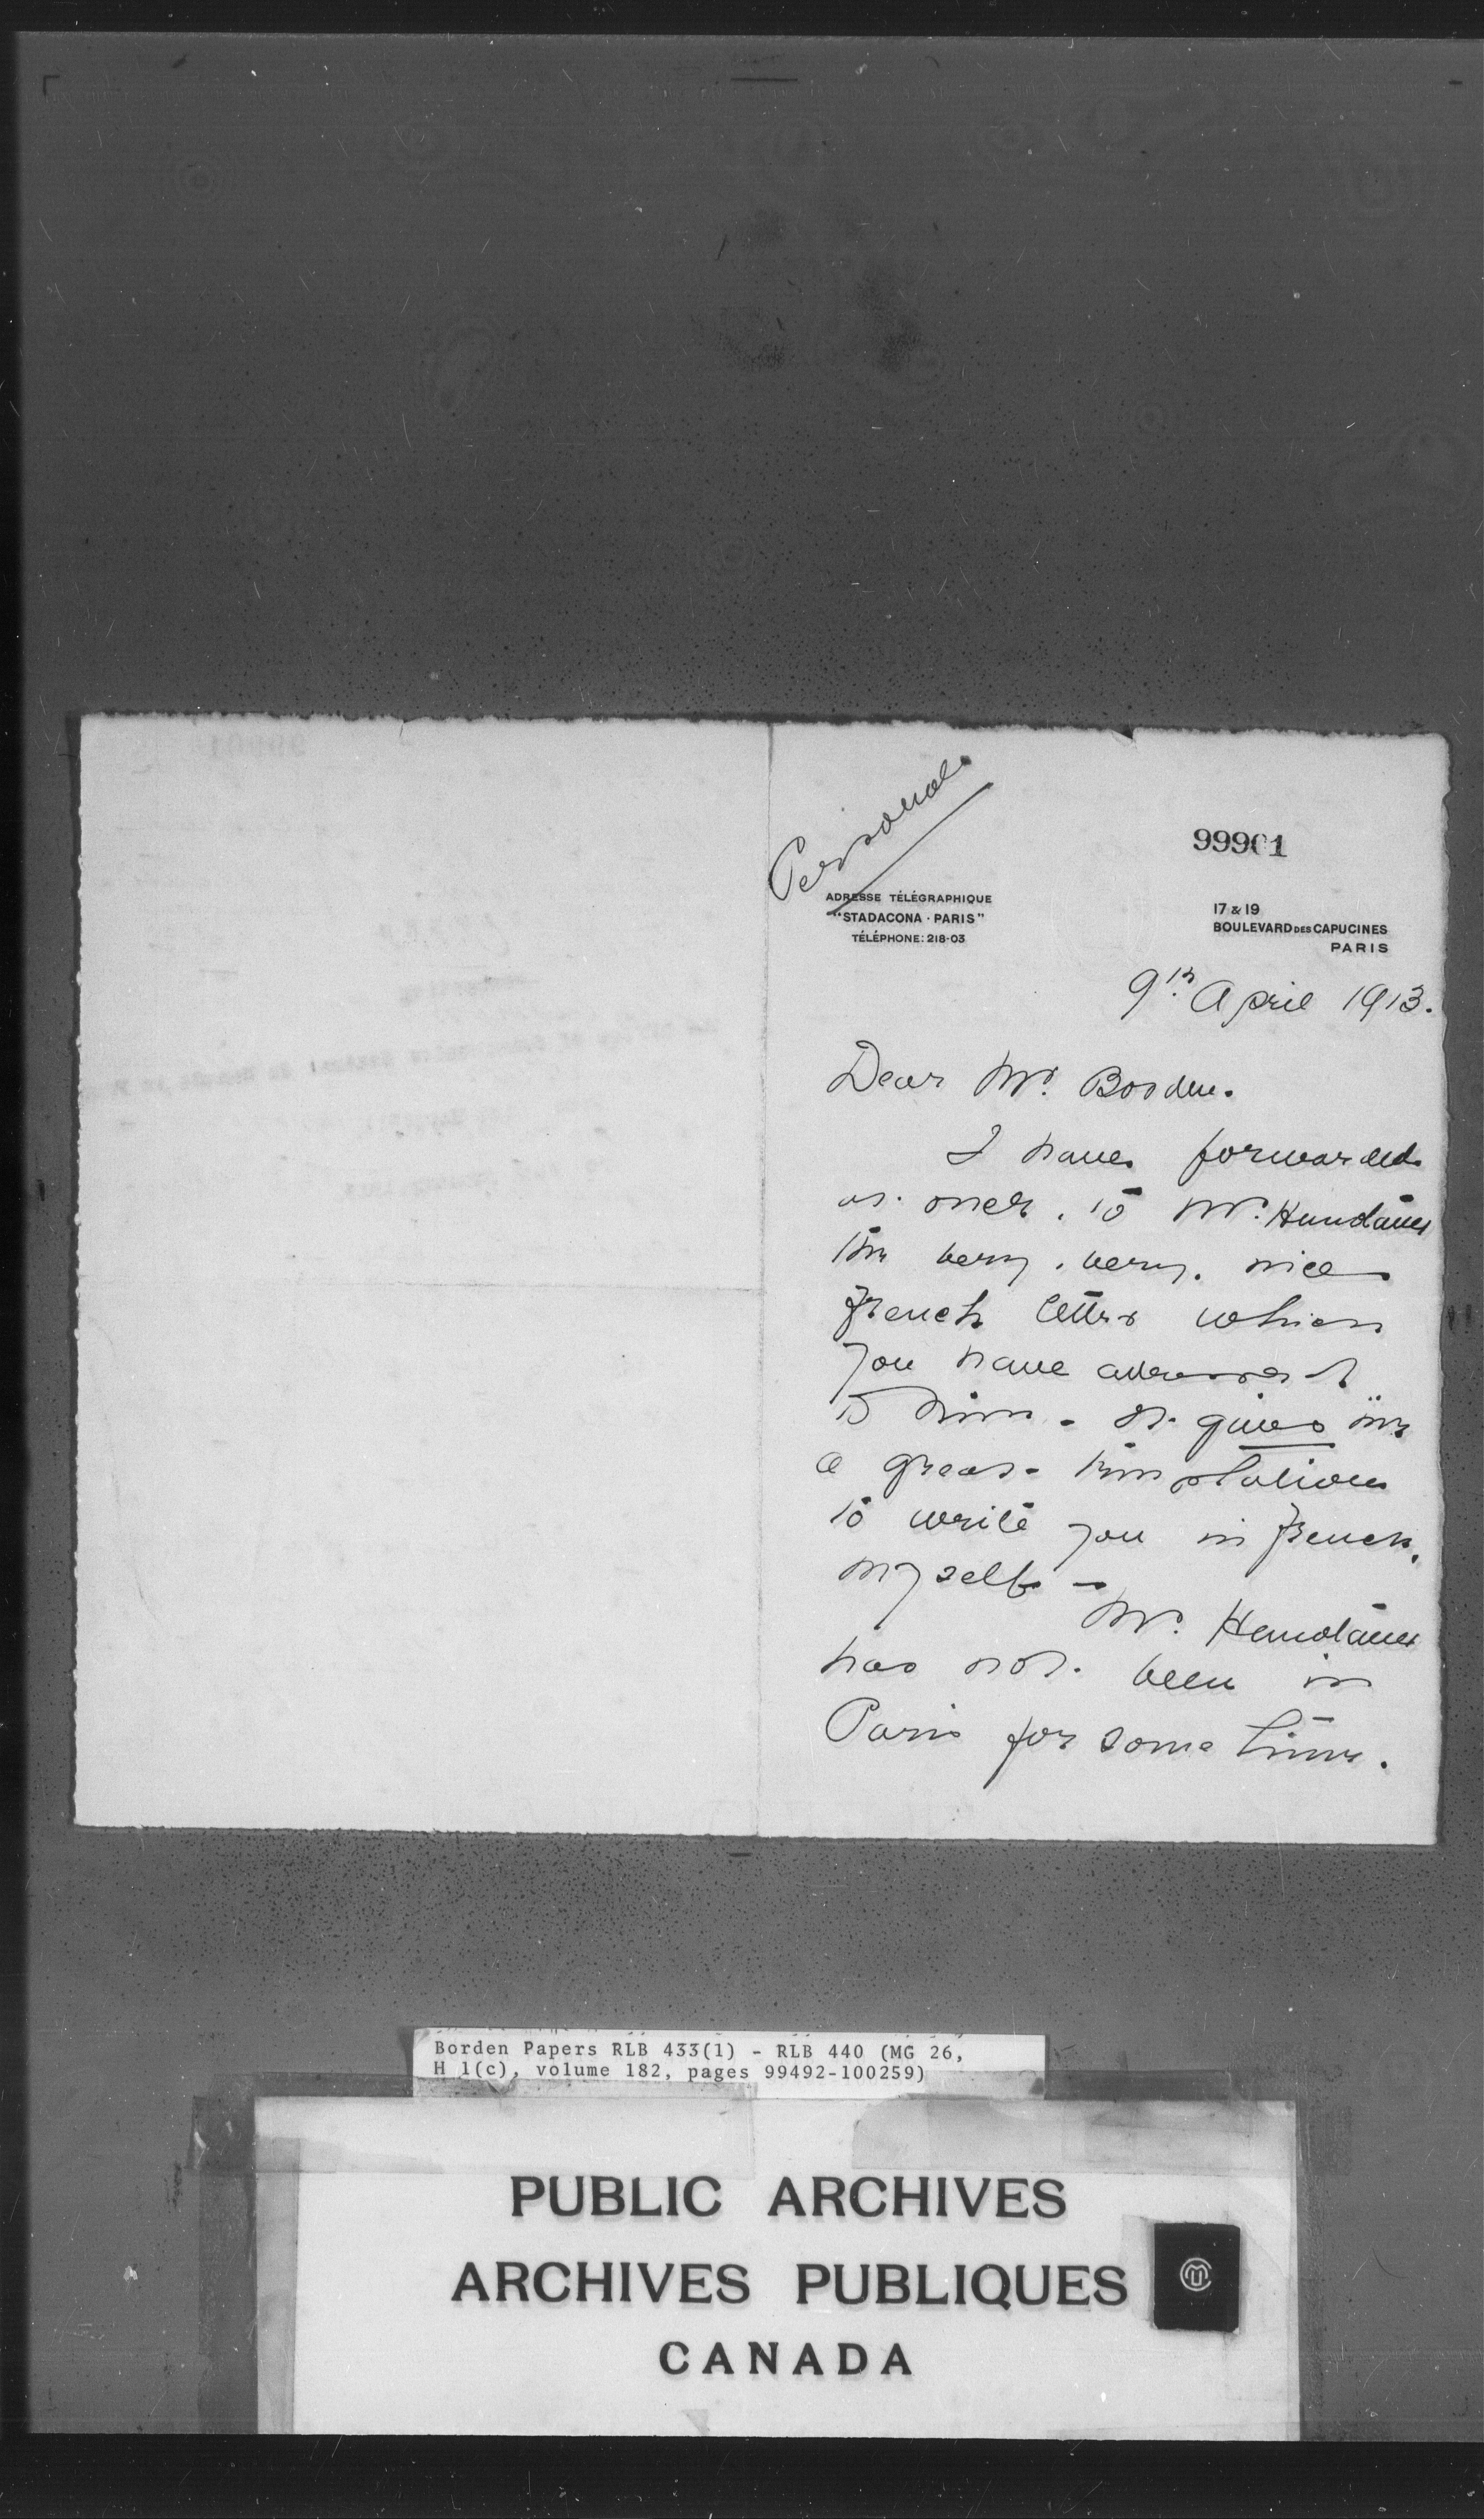 Personal
99901
ADRESSE TÉLÉGRAPHIQUE
"STADACONA · PARIS"
TÉLÉPHONE: 218-03
17 & 19
BOULEVARD DES CAPUCINES
PARIS
9th April 1913.
Dear Mr. Borden.
I have forwarded
at once, to Mr.
the very, very, nice
french letter which
you have addressed
to him - It gives me
a great temptation
to write you in french,
myself -
Mr.
has not been in
Paris for some time.
Borden Papers RLB 433(1) - RLB 440 (MG 26,
H 1(c), volume 182, pages 99492-100259)
PUBLIC ARCHIVES
ARCHIVES PUBLIQUES
CANADA